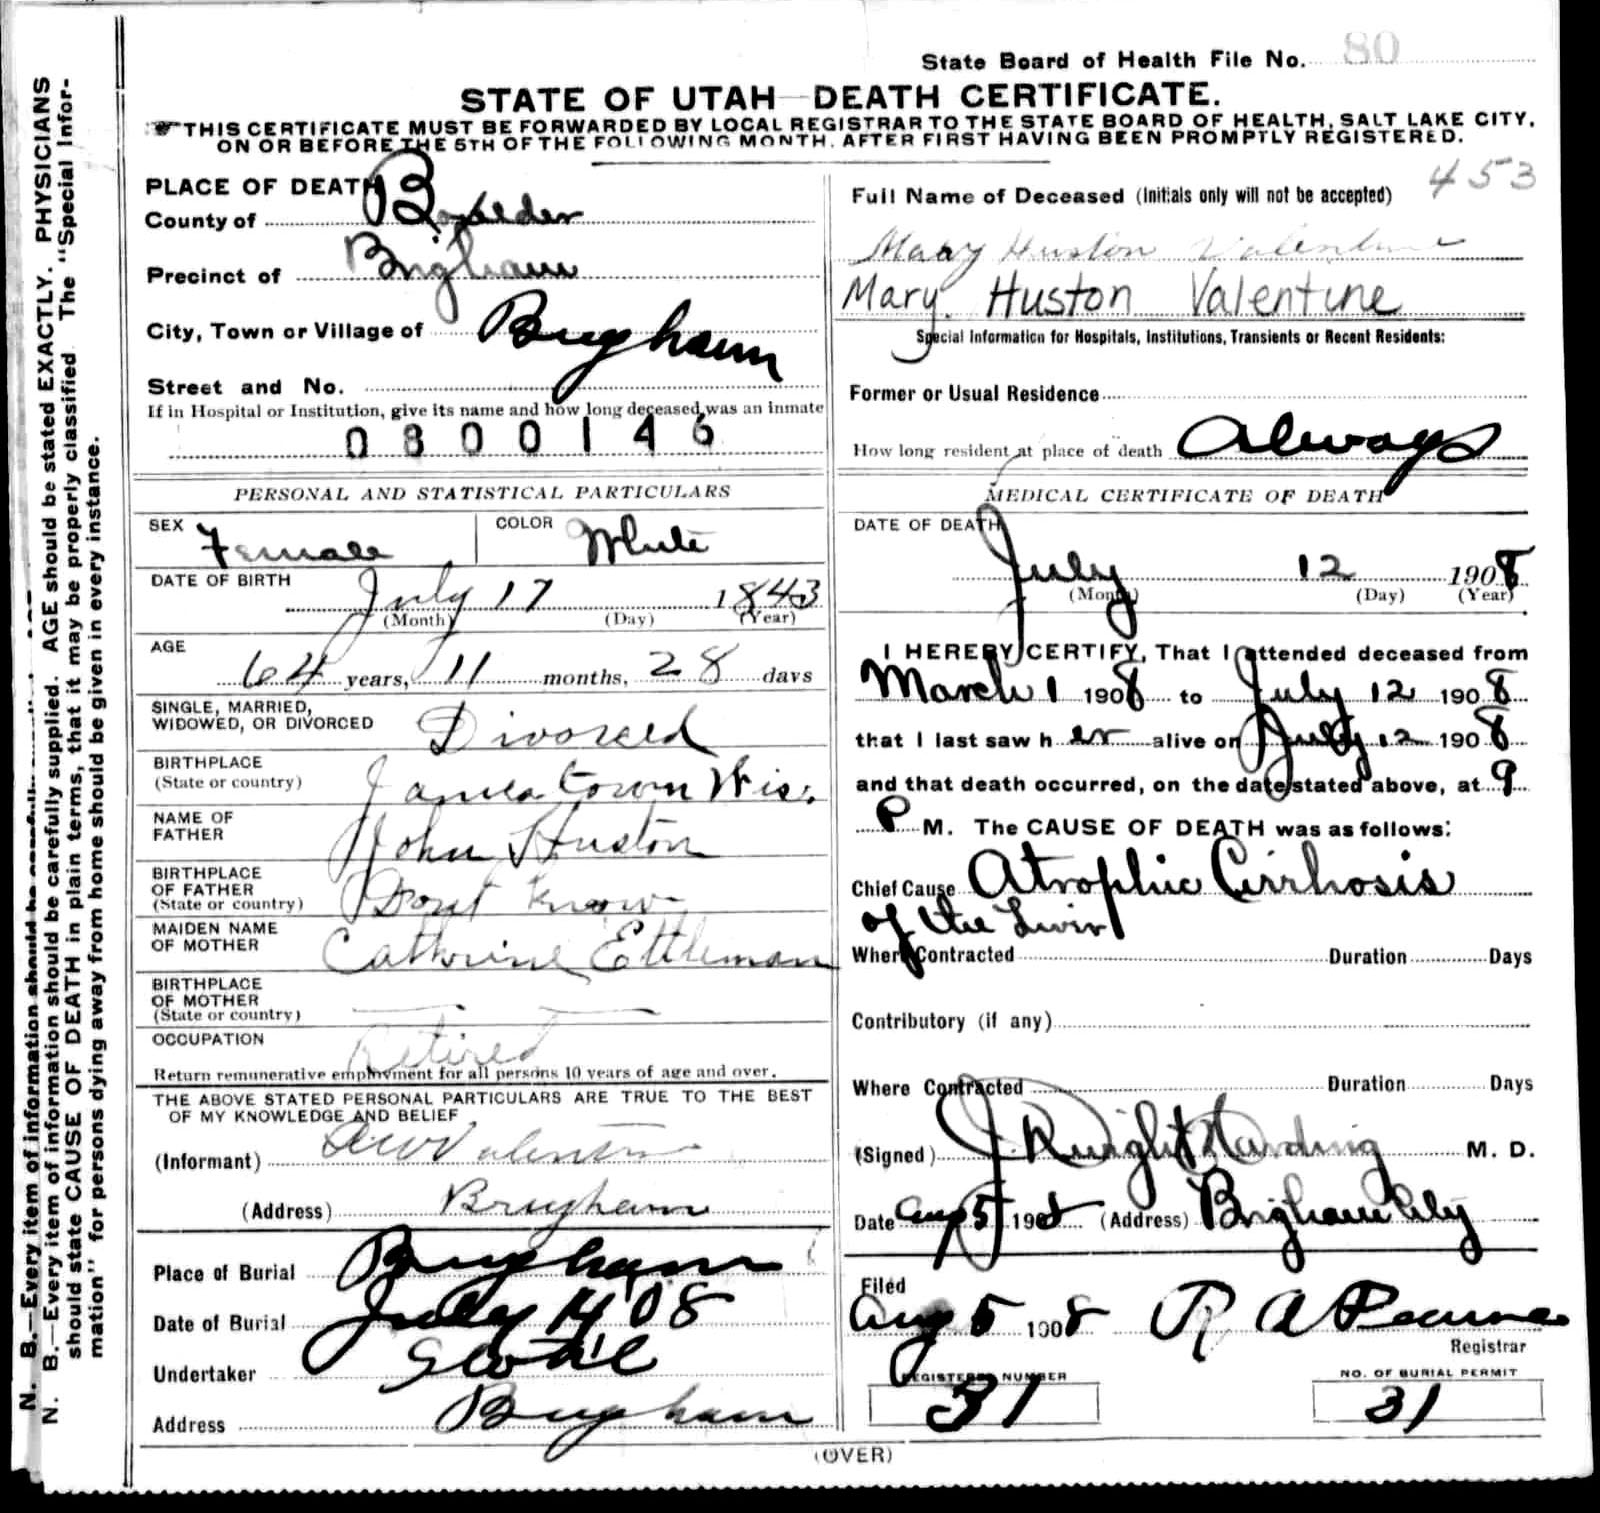 State Board of Health File No. 80
STATE OF UTAH—DEATH CERTIFICATE.
THIS CERTIFICATE MUST BE FORWARDED BY LOCAL REGISTRAR TO THE STATE BOARD OF HEALTH, SALT LAKE CITY,
ON OR BEFORE THE 5TH OF THE FOLLOWING MONTH. AFTER FIRST HAVING BEEN PROMPTLY REGISTERED.
PLACE OF DEATH
County of Boxelder
Precinct of Brigham
City, Town or Village of Brigham
Street and No.
If in Hospital or Institution, give its name and how long deceased was an inmate
0800146
PERSONAL AND STATISTICAL PARTICULARS
SEX Female COLOR White
DATE OF BIRTH July 17 1843
(Month) (Day) (Year)
AGE 64 years, 11 months, 28 days
SINGLE, MARRIED,
WIDOWED, OR DIVORCED Divorced
BIRTHPLACE
(State or country) Jamestown Wis.
NAME OF
FATHER John Huston
BIRTHPLACE
OF FATHER
(State or country) Dont know
MAIDEN NAME
OF MOTHER Catherine Ettleman
BIRTHPLACE
OF MOTHER
(State or country)
OCCUPATION Retired
Return remunerative employment for all persons 10 years of age and over.
THE ABOVE STATED PERSONAL PARTICULARS ARE TRUE TO THE BEST
OF MY KNOWLEDGE AND BELIEF
(Informant) Valentine
(Address) Brigham
Place of Burial Brigham
Date of Burial July 14 '08
Undertaker
Address Brigham
453
Full Name of Deceased (Initials only will not be accepted)
Mary Huston Valentine
Mary Huston Valentine
Special Information for Hospitals, Institutions, Transients or Recent Residents:
Former or Usual Residence
How long resident at place of death Always
MEDICAL CERTIFICATE OF DEATH
DATE OF DEATH
July 12 1908
(Month) (Day) (Year)
I HEREBY CERTIFY, That I attended deceased from
March 1 1908 to July 12 1908
that I last saw h er alive on July 12 1908
and that death occurred, on the date stated above, at 9
P M. The CAUSE OF DEATH was as follows:
Chief Cause Atrophic Cirrhosis
of the Liver
Where Contracted Duration Days
Contributory (if any)
Where Contracted Duration Days
(Signed) J. Dwight Harding M. D.
Date Aug 5 1908 (Address) Brigham City
Filed
Aug 5 1908 R A Pearse
Registrar
REGISTERED NUMBER
31
NO. OF BURIAL PERMIT
31
(OVER)
N. B.—Every item of information should be carefully supplied. AGE should be stated EXACTLY. PHYSICIANS
should state CAUSE OF DEATH in plain terms, that it may be properly classified The "Special Infor-
mation" for persons dying away from home should be given in every instance.